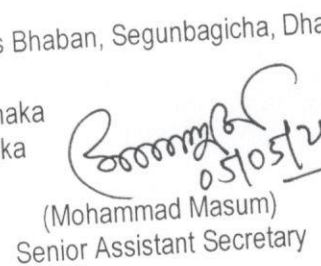 s Bhaban, Segunbagicha, Dha
naka
ka
05/05/2
(Mohammad Masum)
Senior Assistant Secretary